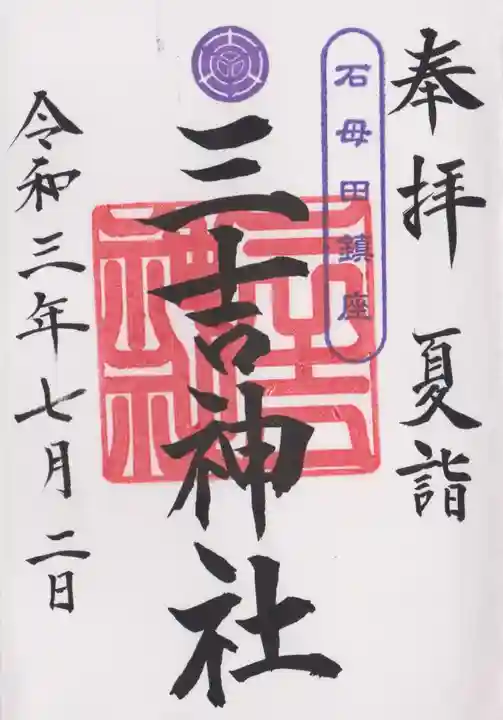 奉拝 夏詣
石母田鎮座
三吉神社
三吉神社
令和三年七月二日